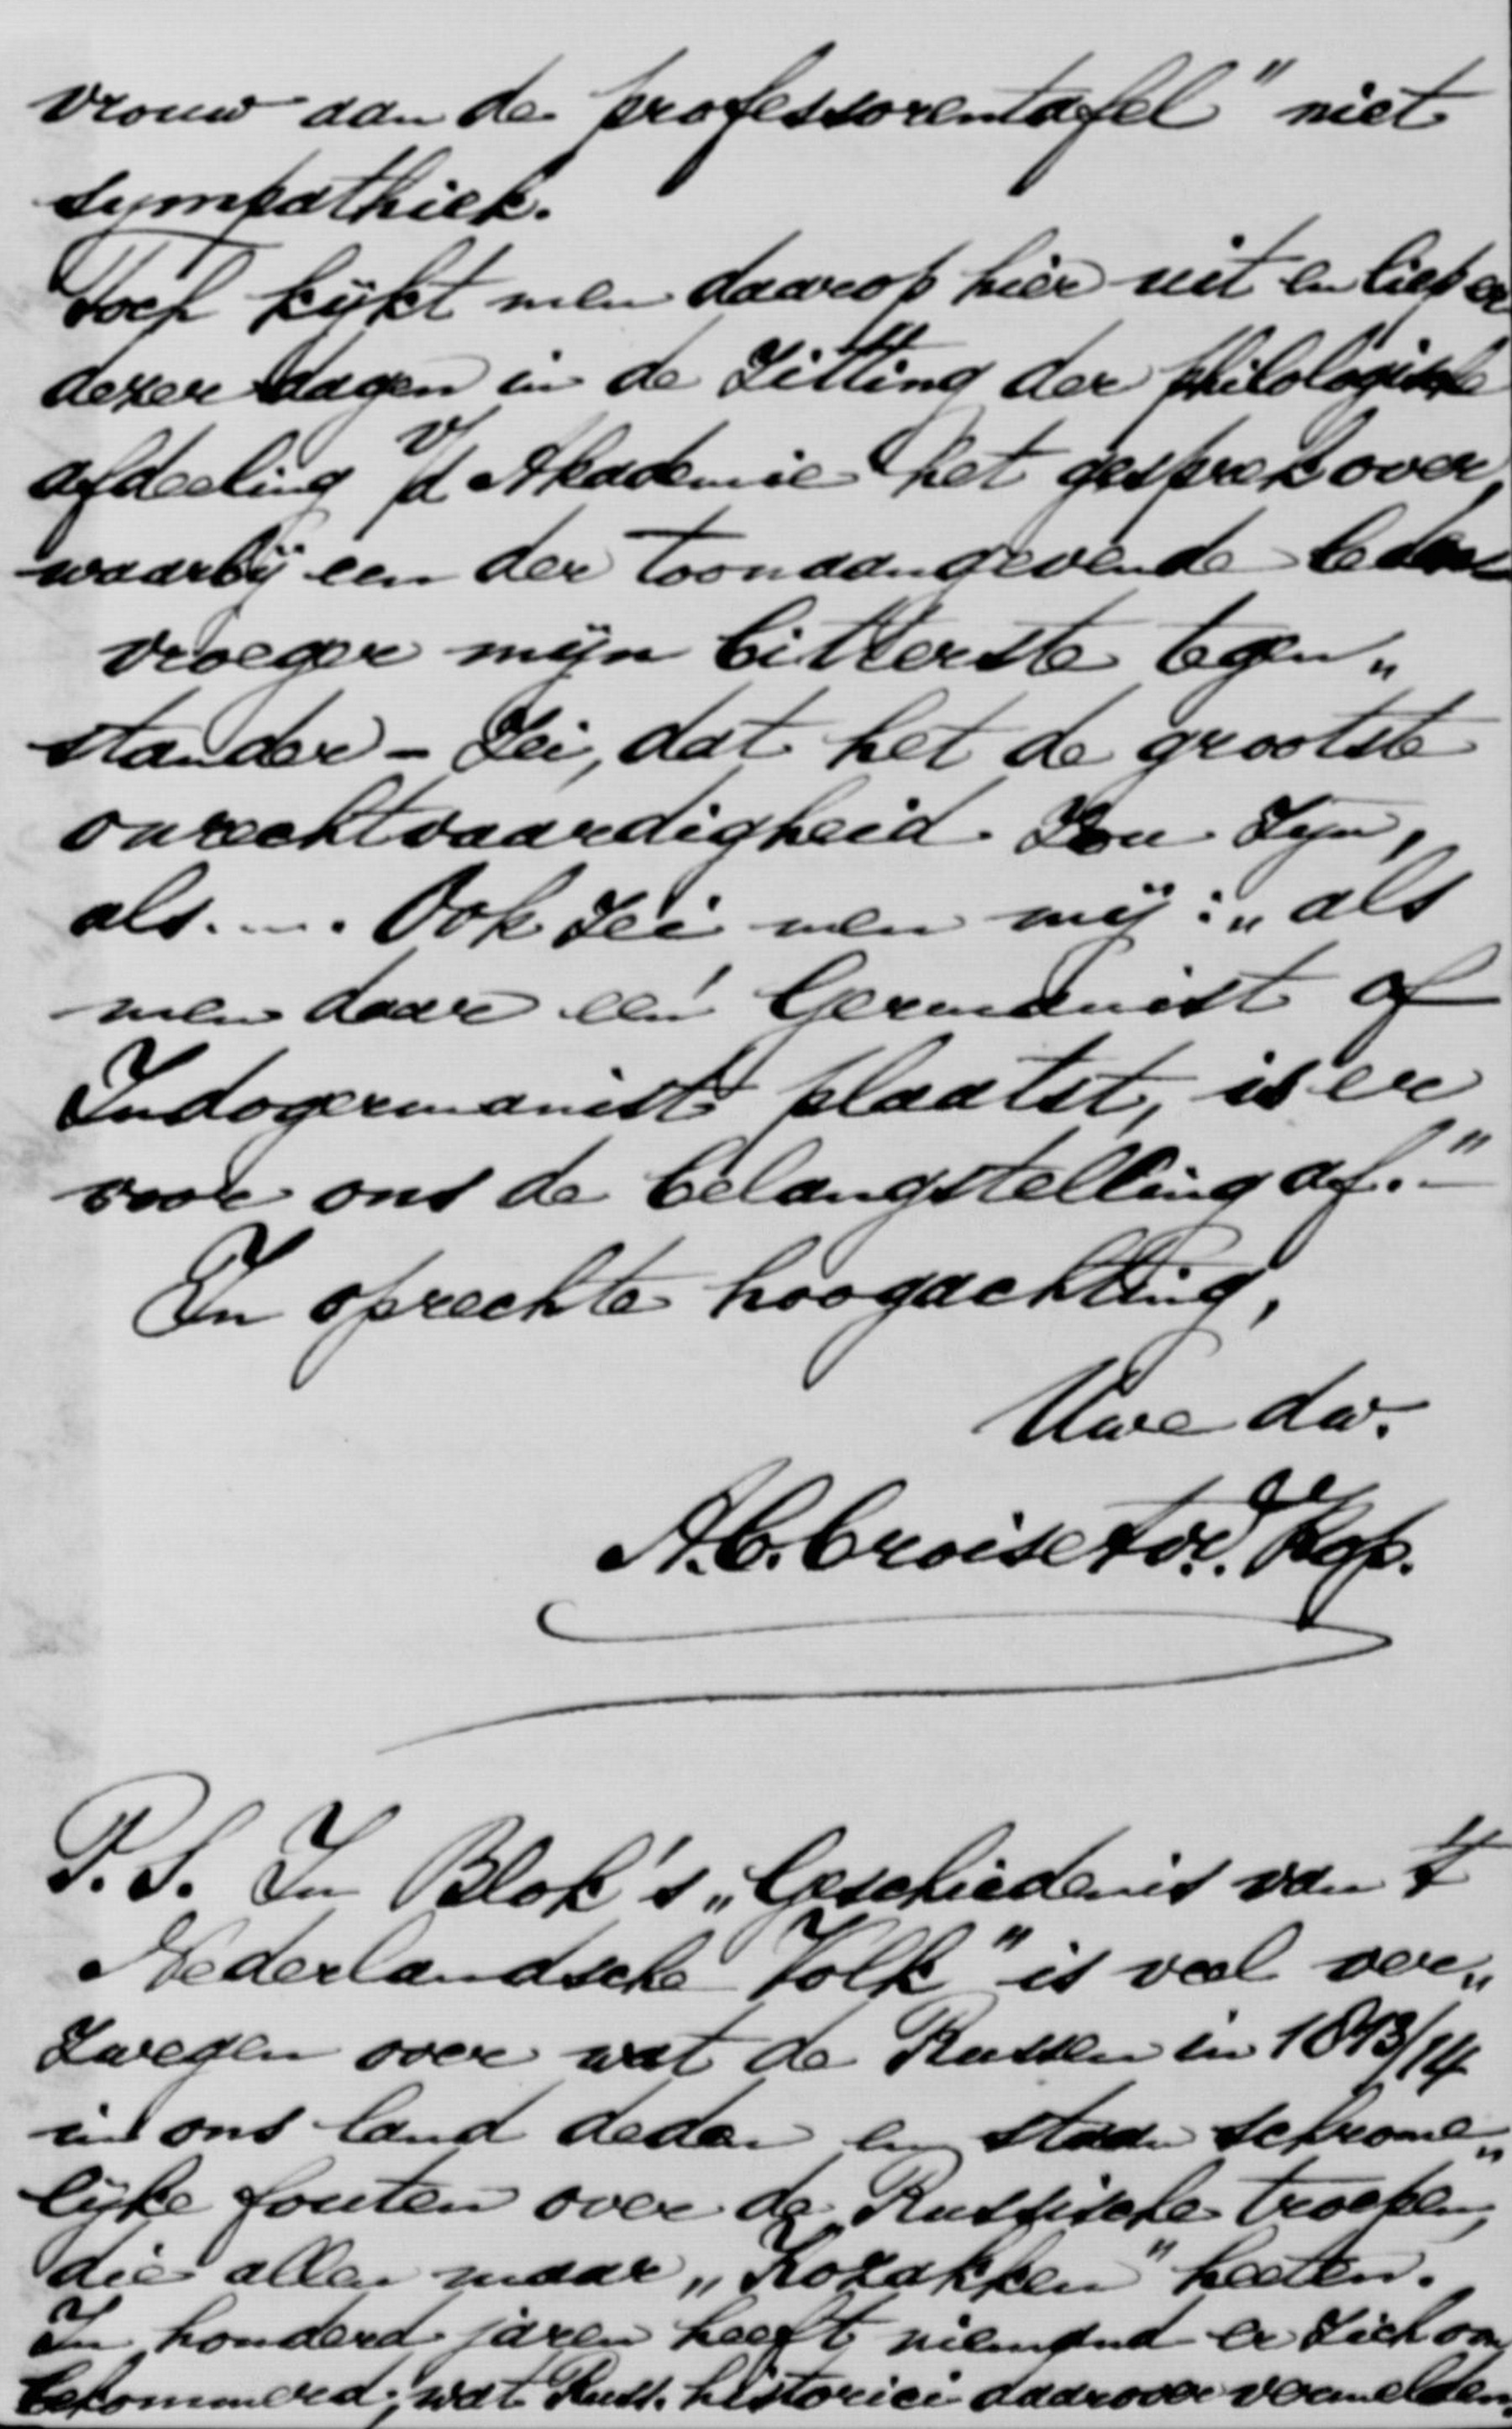 vrouw aan de professorentafel" niet
sympathiek.
Toch kijkt men daarop hier uit en liep er
dezer dagen in de Zitting der philologische
afdeeling v/d Akademie het gesprek over,
waarbij een der toonaangevende leden
vroeger mijn bitterste tegen„
stander - Zei, dat het de grootste
onrechtvaardigheid Zou Zijn,
als.... Ook Zei men mij: „als
men daar een Germanist of
Indogermanist plaatst, is er
voor ons de belangstelling af."-
In oprechte hoogachting,
Uwe dw.
A.C. Croiset v.d. Kop.
P.S. In Blok's „Geschiedenis van 't
Nederlandsche Volk" is veel ver„
Zwegen over wat de Russen in 1813/14
in ons land deden en staan schrome„
lijke fouten over de Russische troepen,
die allen maar „Kozakken" heeten.
In honderd jaren heeft niemand er Zich om
bekommerd, wat Russ. historici daarover vermelden.